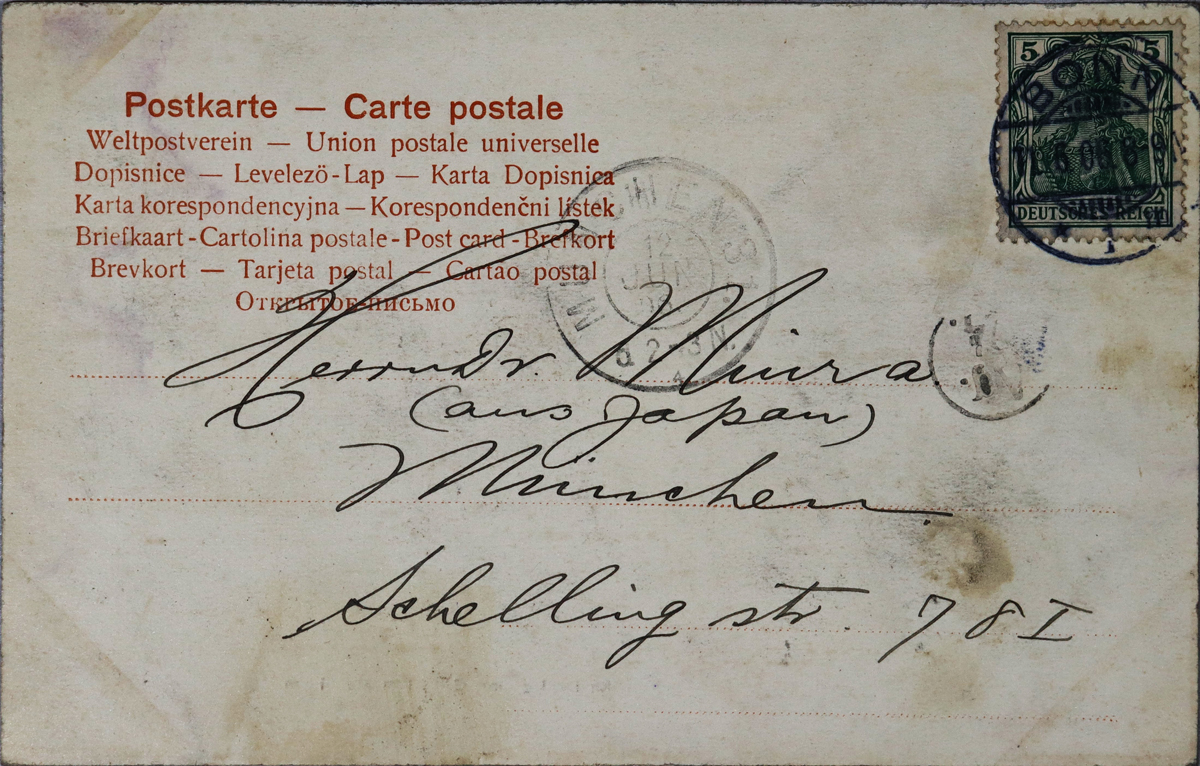 Postkarte — Carte postale
Weltpostverein — Union postale universelle
Dopisnice — Levelezö-Lap — Karta Dopisnica
Karta korespondencyjna — Korespondenčni listek
Briefkaart - Cartolina postale - Post card - Brefkort
Brevkort — Tarjeta postal — Cartao postal
Открытое письмо
5 5
DEUTSCHES REICH
BONN
MUENCHEN
12
JUN
2-3 N.
Herrn Dr. Miura
(aus Japan)
München
Schelling str. 78 I